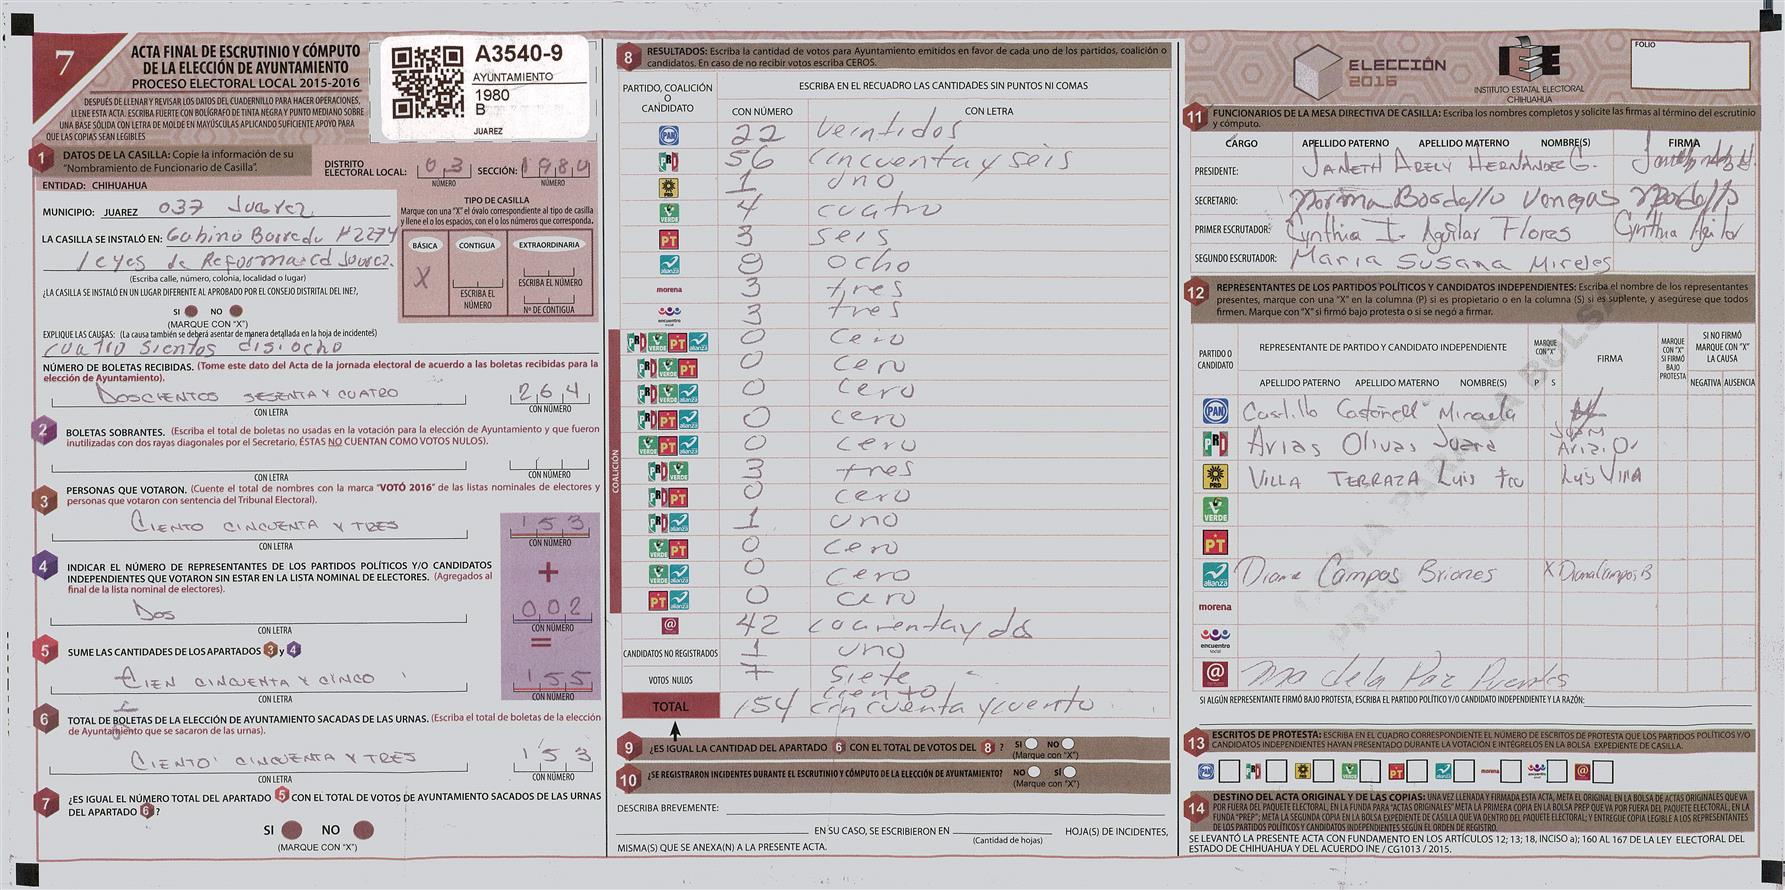 7
ACTA FINAL DE ESCRUTINIO Y CÓMPUTO
DE LA ELECCIÓN DE AYUNTAMIENTO
PROCESO ELECTORAL LOCAL 2015-2016
DESPUÉS DE LLENAR Y REVISAR LOS DATOS DEL CUADERNILLO PARA HACER OPERACIONES,
LLENE ESTA ACTA. ESCRIBA FUERTE CON BOLÍGRAFO DE TINTA NEGRA Y PUNTO MEDIANO SOBRE
UNA BASE SÓLIDA CON LETRA DE MOLDE EN MAYÚSCULAS APLICANDO SUFICIENTE APOYO PARA
QUE LAS COPIAS SEAN LEGIBLES
A3540-9
AYUNTAMIENTO
1980
B
JUAREZ
1 DATOS DE LA CASILLA: Copie la información de su
"Nombramiento de Funcionario de Casilla".
DISTRITO ELECTORAL LOCAL: 03 NÚMERO SECCIÓN: 1980 NÚMERO
ENTIDAD: CHIHUAHUA
MUNICIPIO: JUAREZ 037 Juarez
LA CASILLA SE INSTALÓ EN: Gabino Barreda #2274
Leyes de Reforma cd Juarez.
(Escriba calle, número, colonia, localidad o lugar)
¿LA CASILLA SE INSTALÓ EN UN LUGAR DIFERENTE AL APROBADO POR EL CONSEJO DISTRITAL DEL INE?,
SI NO
(MARQUE CON "X")
EXPLIQUE LAS CAUSAS: (La causa también se deberá asentar de manera detallada en la hoja de incidentes)
cuatro sientos disiocho
TIPO DE CASILLA
Marque con una "X" el óvalo correspondiente al tipo de casilla
y llene el o los espacios, con el o los números que corresponda.
BÁSICA CONTIGUA EXTRAORDINARIA
X
ESCRIBA EL NÚMERO
ESCRIBA EL NÚMERO
Nº DE CONTIGUA
NÚMERO DE BOLETAS RECIBIDAS. (Tome este dato del Acta de la jornada electoral de acuerdo a las boletas recibidas para la
elección de Ayuntamiento).
DOSCIENTOS SESENTA Y CUATRO 264
CON LETRA CON NÚMERO
2 BOLETAS SOBRANTES. (Escriba el total de boletas no usadas en la votación para la elección de Ayuntamiento y que fueron
inutilizadas con dos rayas diagonales por el Secretario, ÉSTAS NO CUENTAN COMO VOTOS NULOS).
CON LETRA CON NÚMERO
3 PERSONAS QUE VOTARON. (Cuente el total de nombres con la marca "VOTÓ 2016" de las listas nominales de electores y
personas que votaron con sentencia del Tribunal Electoral).
CIENTO CINCUENTA Y TRES 153
CON LETRA CON NÚMERO
4 INDICAR EL NÚMERO DE REPRESENTANTES DE LOS PARTIDOS POLÍTICOS Y/O CANDIDATOS
INDEPENDIENTES QUE VOTARON SIN ESTAR EN LA LISTA NOMINAL DE ELECTORES. (Agregados al
final de la lista nominal de electores).
+
DOS 002
CON LETRA CON NÚMERO
=
5 SUME LAS CANTIDADES DE LOS APARTADOS 3 y 4
CIEN CINCUENTA Y CINCO 155
CON LETRA CON NÚMERO
6 TOTAL DE BOLETAS DE LA ELECCIÓN DE AYUNTAMIENTO SACADAS DE LAS URNAS. (Escriba el total de boletas de la elección
de Ayuntamiento que se sacaron de las urnas).
CIENTO CINCUENTA Y TRES 153
CON LETRA CON NÚMERO
7 ¿ES IGUAL EL NÚMERO TOTAL DEL APARTADO 5 CON EL TOTAL DE VOTOS DE AYUNTAMIENTO SACADOS DE LAS URNAS
DEL APARTADO 6?
SI NO
(MARQUE CON "X")
8 RESULTADOS: Escriba la cantidad de votos para Ayuntamiento emitidos en favor de cada uno de los partidos, coalición o
candidatos. En caso de no recibir votos escriba CEROS.
PARTIDO, COALICIÓN O CANDIDATO
ESCRIBA EN EL RECUADRO LAS CANTIDADES SIN PUNTOS NI COMAS
CON NÚMERO CON LETRA
PAN 22 Veintidos
PRI 56 cincuenta y seis
PRD 1 uno
VERDE 4 cuatro
PT 3 seis
alianza 8 ocho
morena 3 tres
encuentro social 3 tres
COALICIÓN
PRI VERDE PT alianza 0 cero
PRI VERDE PT 0 cero
PRI VERDE alianza 0 cero
PRI PT alianza 0 cero
VERDE PT alianza 0 cero
PRI VERDE 3 tres
PRI PT 0 cero
PRI alianza 1 uno
VERDE PT 0 cero
VERDE alianza 0 cero
PT alianza 0 cero
@ 42 cuarenta y dos
CANDIDATOS NO REGISTRADOS 1 uno
VOTOS NULOS 7 siete
TOTAL 154 ciento cincuenta y cuento
9 ¿ES IGUAL LA CANTIDAD DEL APARTADO 6 CON EL TOTAL DE VOTOS DEL 8? SI NO
(Marque con "X")
10 ¿SE REGISTRARON INCIDENTES DURANTE EL ESCRUTINIO Y CÓMPUTO DE LA ELECCIÓN DE AYUNTAMIENTO? NO SÍ
(Marque con "X")
DESCRIBA BREVEMENTE:
EN SU CASO, SE ESCRIBIERON EN HOJA(S) DE INCIDENTES,
(Cantidad de hojas)
MISMA(S) QUE SE ANEXA(N) A LA PRESENTE ACTA.
ELECCIÓN
2016
IEE
INSTITUTO ESTATAL ELECTORAL
CHIHUAHUA
FOLIO
11 FUNCIONARIOS DE LA MESA DIRECTIVA DE CASILLA: Escriba los nombres completos y solicite las firmas al término del escrutinio
y cómputo.
CARGO APELLIDO PATERNO APELLIDO MATERNO NOMBRE(S) FIRMA
PRESIDENTE: JANETH ARELY HERNANDEZ G.
SECRETARIO: Norma Bordallo Venegas
PRIMER ESCRUTADOR: Cynthia I. Aguilar Flores Cynthia Aguilar
SEGUNDO ESCRUTADOR: Maria Susana Mireles
12 REPRESENTANTES DE LOS PARTIDOS POLÍTICOS Y CANDIDATOS INDEPENDIENTES: Escriba el nombre de los representantes
presentes, marque con una "X" en la columna (P) si es propietario o en la columna (S) si es suplente, y asegúrese que todos
firmen. Marque con "X" si firmó bajo protesta o si se negó a firmar.
PARTIDO O CANDIDATO
REPRESENTANTE DE PARTIDO Y CANDIDATO INDEPENDIENTE
APELLIDO PATERNO APELLIDO MATERNO NOMBRE(S)
MARQUE CON "X"
P S
FIRMA
MARQUE CON "X" SI FIRMÓ BAJO PROTESTA
SI NO FIRMÓ MARQUE CON "X" LA CAUSA
NEGATIVA AUSENCIA
PAN Castillo Micaela
PRI Arias Olivas Juana
PRD VILLA TERRAZA Luis Fco Luis VillA
VERDE
PT
alianza Diana Campos Briones X Diana Campos B
morena
encuentro social
@ Ma de la Paz Puentes
COPIA PARA LA BOLSA
PREP
SI ALGÚN REPRESENTANTE FIRMÓ BAJO PROTESTA, ESCRIBA EL PARTIDO POLÍTICO Y/O CANDIDATO INDEPENDIENTE Y LA RAZÓN:
13 ESCRITOS DE PROTESTA: ESCRIBA EN EL CUADRO CORRESPONDIENTE EL NÚMERO DE ESCRITOS DE PROTESTA QUE LOS PARTIDOS POLÍTICOS Y/O
CANDIDATOS INDEPENDIENTES HAYAN PRESENTADO DURANTE LA VOTACIÓN E INTÉGRELOS EN LA BOLSA EXPEDIENTE DE CASILLA.
PAN PRI PRD VERDE PT alianza morena encuentro social @
14 DESTINO DEL ACTA ORIGINAL Y DE LAS COPIAS: UNA VEZ LLENADA Y FIRMADA ESTA ACTA, META EL ORIGINAL EN LA BOLSA DE ACTAS ORIGINALES QUE VA
POR FUERA DEL PAQUETE ELECTORAL, EN LA FUNDA PARA "ACTAS ORIGINALES" META LA PRIMERA COPIA EN LA BOLSA PREP QUE VA POR FUERA DEL PAQUETE ELECTORAL, EN LA
FUNDA "PREP"; META LA SEGUNDA COPIA EN LA BOLSA EXPEDIENTE DE CASILLA QUE VA DENTRO DEL PAQUETE ELECTORAL; Y ENTREGUE COPIA LEGIBLE A LOS REPRESENTANTES
DE LOS PARTIDOS POLÍTICOS Y CANDIDATOS INDEPENDIENTES SEGÚN EL ORDEN DE REGISTRO.
SE LEVANTÓ LA PRESENTE ACTA CON FUNDAMENTO EN LOS ARTÍCULOS 12; 13; 18, INCISO a); 160 AL 167 DE LA LEY ELECTORAL DEL
ESTADO DE CHIHUAHUA Y DEL ACUERDO INE / CG1013 / 2015.